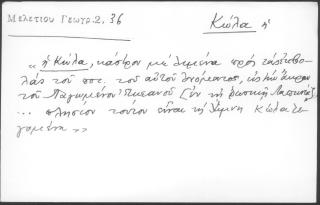 Μελετίου Γεωγρ. 2, 36
Κώλα ἡ
« ἡ Κώλα, κάστρον μὲ λιμένα πρὸς ταῖς ἐκβο-
λὰς τοῦ ποτ. τοῦ αὐτοῦ ὀνόματος, εἰς τὴν ἄκραν
τοῦ Παγωμένου Ὠκεανοῦ (ἐν τῇ ῥωσικῇ Λαπωνίᾳ)
... πλησίον τούτου εἶναι τῇ λίμνῃ Κώλα λε
γομένῃ »